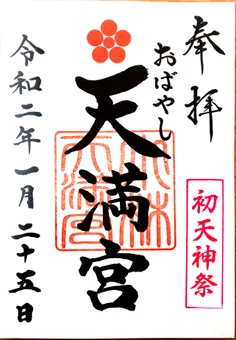 奉拝
おばやし
天満宮
初天神祭
令和二年一月二十五日